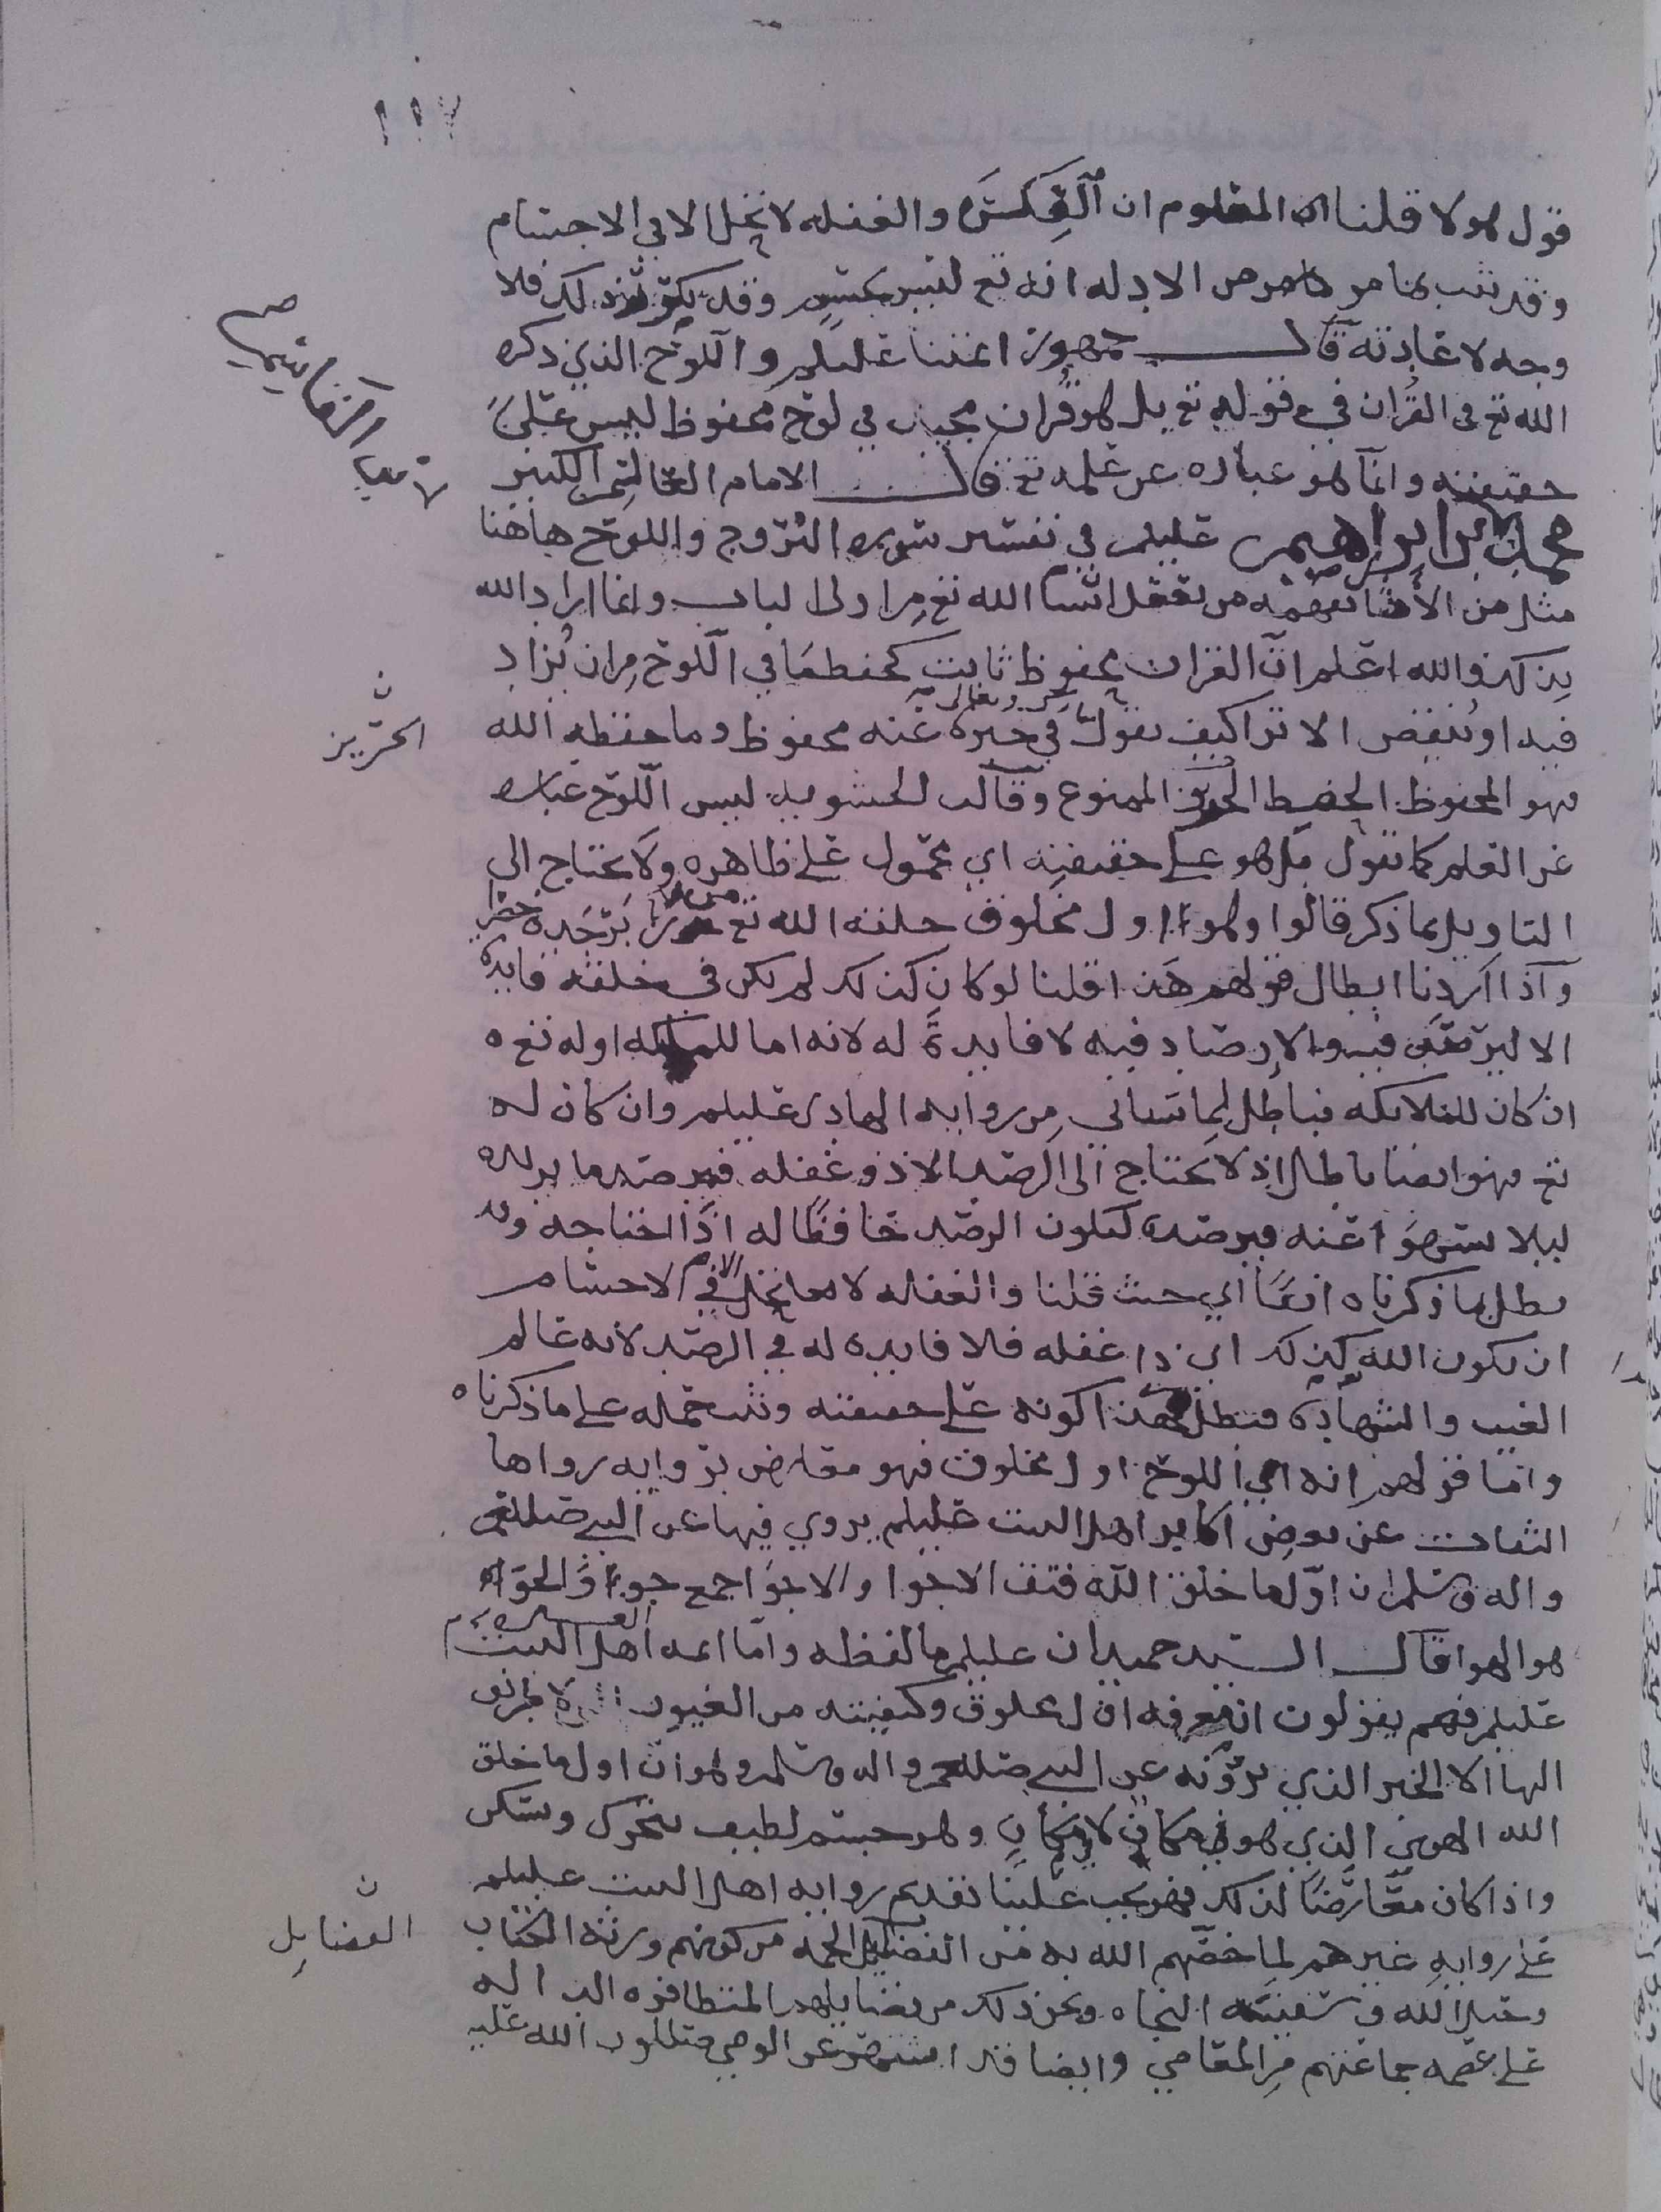 ١١٧
قول هولا قلنا ان المعلوم ان الفكره والغفله لا تحل الا في الاجسام
وقد ثبت بما مر من الادله انه تع ليس بجسم وقد ذلك فلا
وجه لاعادته قال جمهور ائمتنا عليلم واللوح الذي ذكره
الله تع في القران في قوله تع بل هو قران مجيد في لوح محفوظ ليس على
حقيقته وانما هو عباره عن علمه تع قال الامام العالم الكبير
القاسم
محمد بن ابراهيم عليلم في تفسير سوره البروج واللوح هاهنا
مثل من الأمثال يفهمه من يعقل انشا الله تع من اولى الالباب وانما اراد الله
بذكره والله اعلم ان القران محفوظ ثابت كحفظ ما في اللوح من ان يزاد
فيه او ينقص الا ترا كيف يقول في خبره عنه محفوظ وما حفظه الله
تبارك وتعالى
الحريز
فهو المحفوظ الحفيظ الحريز الممنوع وقالت الحشويه ليس اللوح عباره
عن العلم كما تقول بل هو على حقيقته اي محمول على ظاهره ولا يحتاج الى
التاويل بما ذكر قالوا وهو اول مخلوق خلقه الله تع من زبرجده خضرا
وآذا اردنا ابطال قولهم هذا قلنا لو كان كذلك لم يكن في خلقه فايده
الا ليرصد فيه والارصاد فيه لا فايدة له لانه اما للملائكه او له تع ه
ان كان للملائكه فباطل لما سياتي من روايه الهادى عليلم وان كان له
تع فهو ايضا باطل اذ لا يحتاج الى الرصد الا ذو غفله فيرصد ما يريده
ليلا يسهوا عنه فيرصده ليكون الرصد حافظا له اذا احتاجه وقد
بطل بما ذكرناه انفا اي حيث قلنا والغفله لا تحل الا في الاجسام
ان يكون الله كذلك اي ذا غفله فلا فايده له في الرصد لانه عالم
الغيب والشهاده فبطل بهذا كونه على حقيقته وثبت حمله على ما ذكرناه
واما قولهم انه اي اللوح اول مخلوق فهو معارض بروايه رواها
الثقات عن بعض اكابر اهل البيت عليلم يروي فيها عن النبي صللعم
واله وسلم ان اول ما خلق الله فتق الاجوا والاجوا جمع جو والجو
هو الهوا قال السيد حميدان عليلم ما لفظه واما ائمه اهل البيت
عليلم فهم يقولون ان معرفه اول مخلوق وكيفيته من الغيوب لا طريق
اليها الا الخبر الذي يروونه عن النبي صللعم واله وسلم وهو ان اول ما خلق
الله الهوى الذي هو مكان لا في مكان وهو جسم لطيف يتحرك ويسكن
واذا كان معارضا لذلك فهو يجب علينا تقديم روايه اهل البيت عليلم
على روايه غيرهم لما خصهم الله به من الفضايل الجمه من كونهم ورثه الكتاب
الفضايل
وحبل الله وسفينه النجاه ونحو ذلك من فضايلهم المتظافره الداله
على عصمه جماعتهم من المعاصي وايضا قد اشتهر عن الوصي صلوات الله عليه